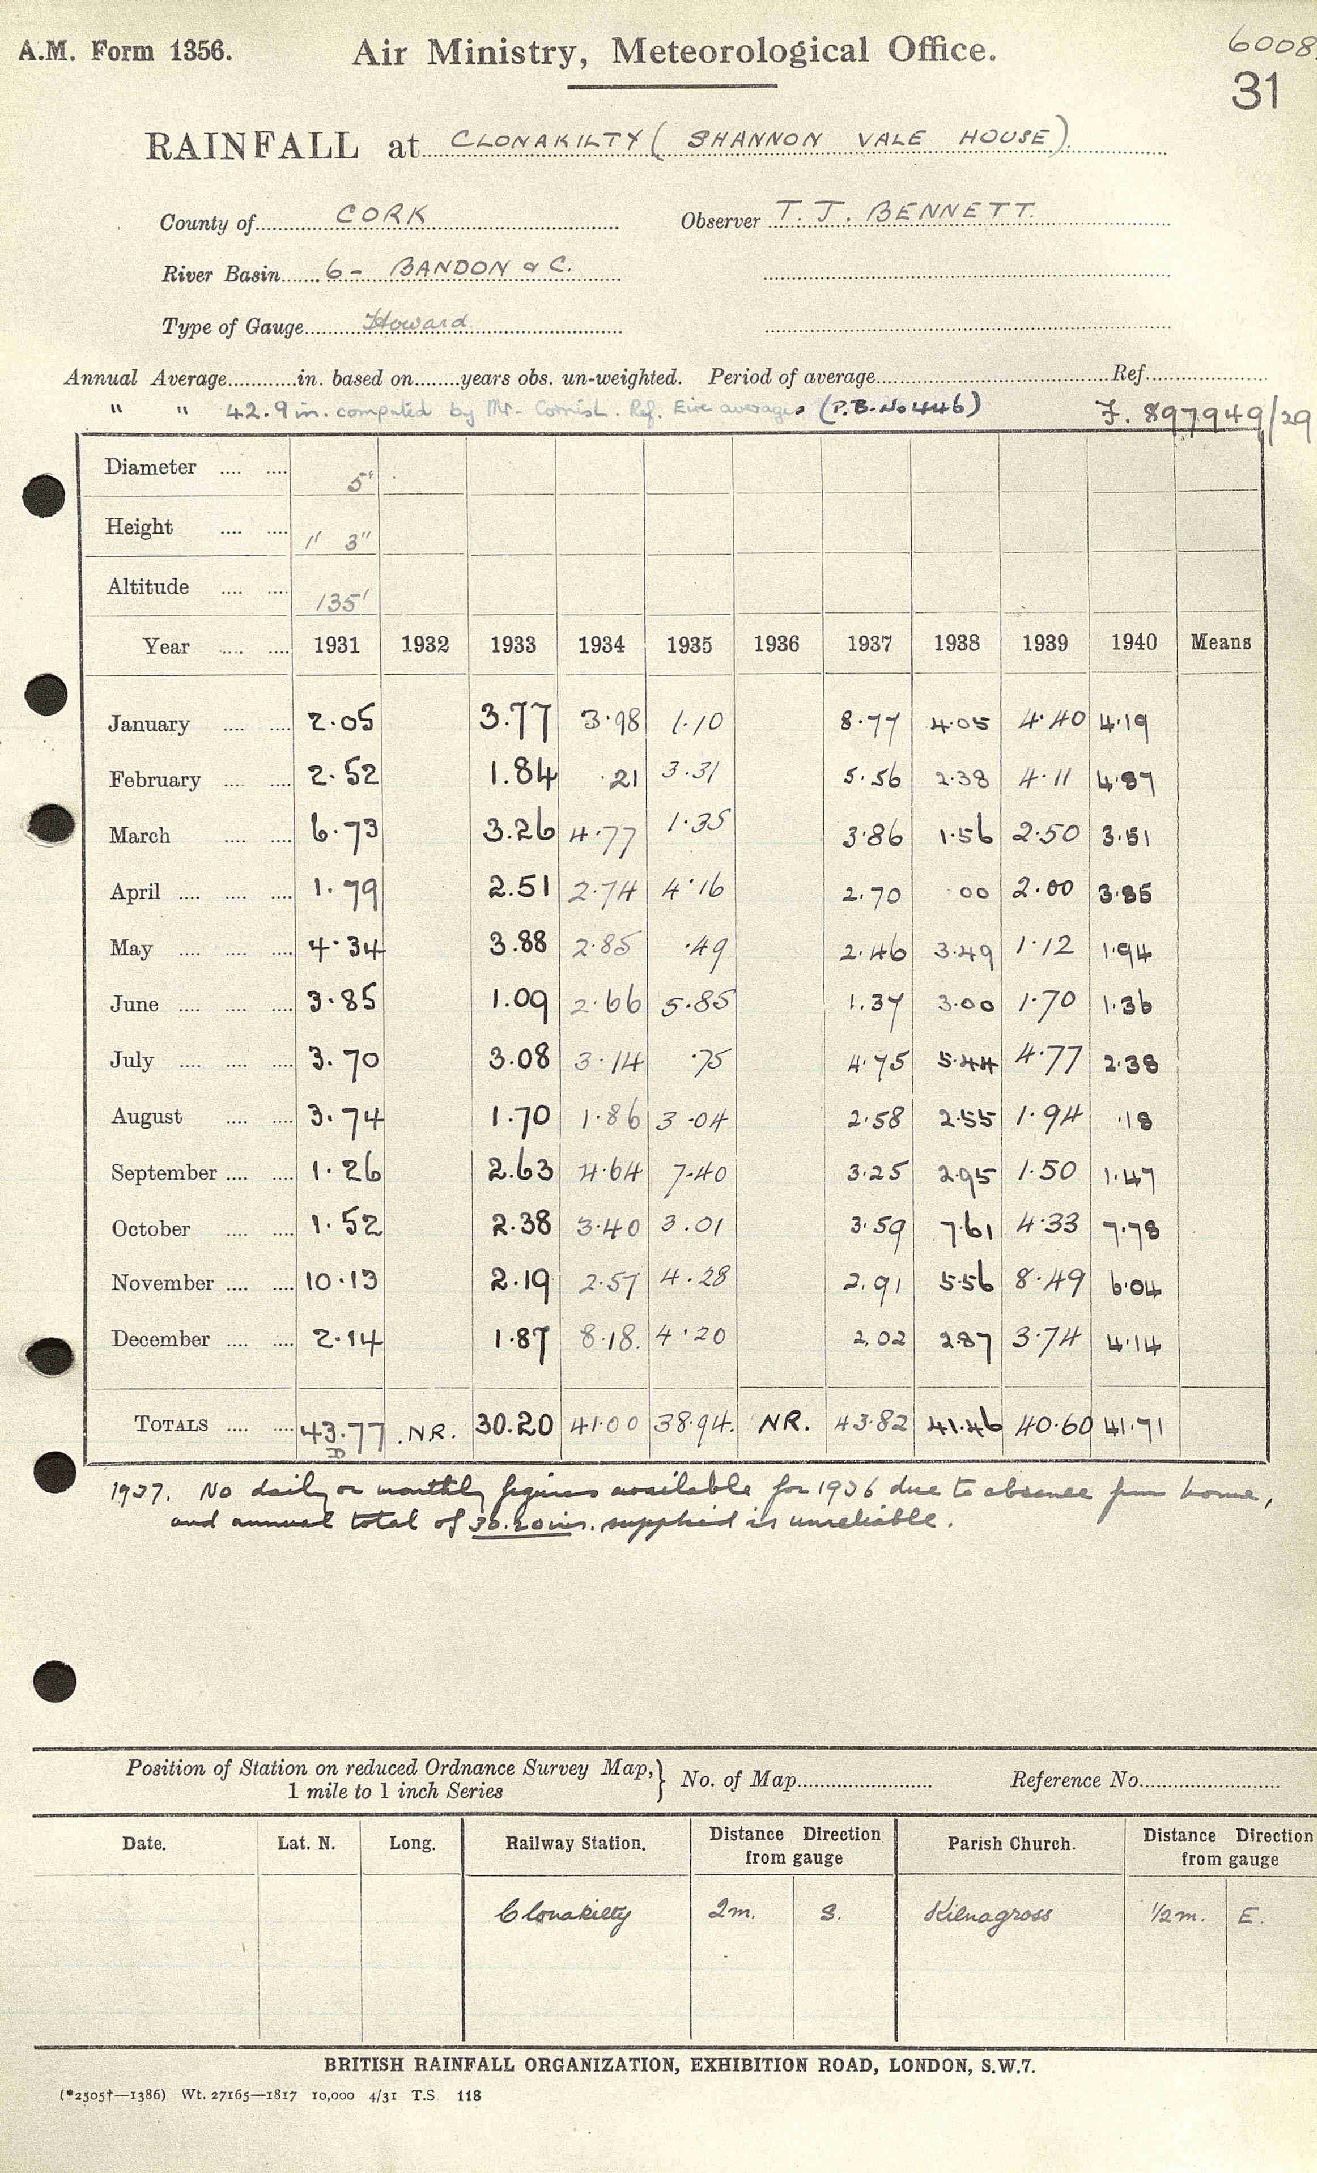 A.M. Form 1356. Air Ministry, Meteorological Office. 6008
31
RAINFALL at CLONAKILTY ( SHANNON VALE HOUSE )
County of CORK Observer T. J. BENNETT.
River Basin 6 - BANDON & C.
Type of Gauge Howard
Annual Average in. based on years obs. un-weighted. Period of average Ref.
" " 42.9 in. computed by Mr. Cornish. Ref. Eire averages (P.B. No 446) F. 897949/29
Diameter 5"
Height 1' 3"
Altitude 135'
Year 1931 1932 1933 1934 1935 1936 1937 1938 1939 1940 Means
January 2.05 3.77 3.98 1.10 8.77 4.05 4.40 4.19
February 2.52 1.84 .21 3.31 5.56 2.38 4.11 4.87
March 6.73 3.26 4.77 1.35 3.86 1.56 2.50 3.51
April 1.79 2.51 2.74 4.16 2.70 .00 2.00 3.85
May 4.34 3.88 2.85 .49 2.46 3.49 1.12 1.94
June 3.85 1.09 2.66 5.85 1.37 3.00 1.70 1.36
July 3.70 3.08 3.14 .75 4.75 5.44 4.77 2.38
August 3.74 1.70 1.86 3.04 2.58 2.55 1.94 .18
September 1.26 2.63 4.64 7.40 3.25 2.95 1.50 1.47
October 1.52 2.38 3.40 3.01 3.59 7.61 4.33 7.78
November 10.13 2.19 2.57 4.28 2.91 5.56 8.49 6.04
December 2.14 1.87 8.18 4.20 2.02 2.87 3.74 4.14
TOTALS 43.77 NR. 30.20 41.00 38.94 NR. 43.82 41.46 40.60 41.71
D
1937. No daily or monthly figures available for 1936 due to absence from home,
and annual total of 30.20 ins. supplied is unreliable.
Position of Station on reduced Ordnance Survey Map,
1 mile to 1 inch Series } No. of Map Reference No.
Date. Lat. N. Long. Railway Station. Distance Direction from gauge Parish Church. Distance Direction from gauge
Clonakilty 2m. S. Kilnagross 1/2 m. E.
BRITISH RAINFALL ORGANIZATION, EXHIBITION ROAD, LONDON, S.W.7.
(*2505†—1386) Wt. 27165—1817 10,000 4/31 T.S. 118